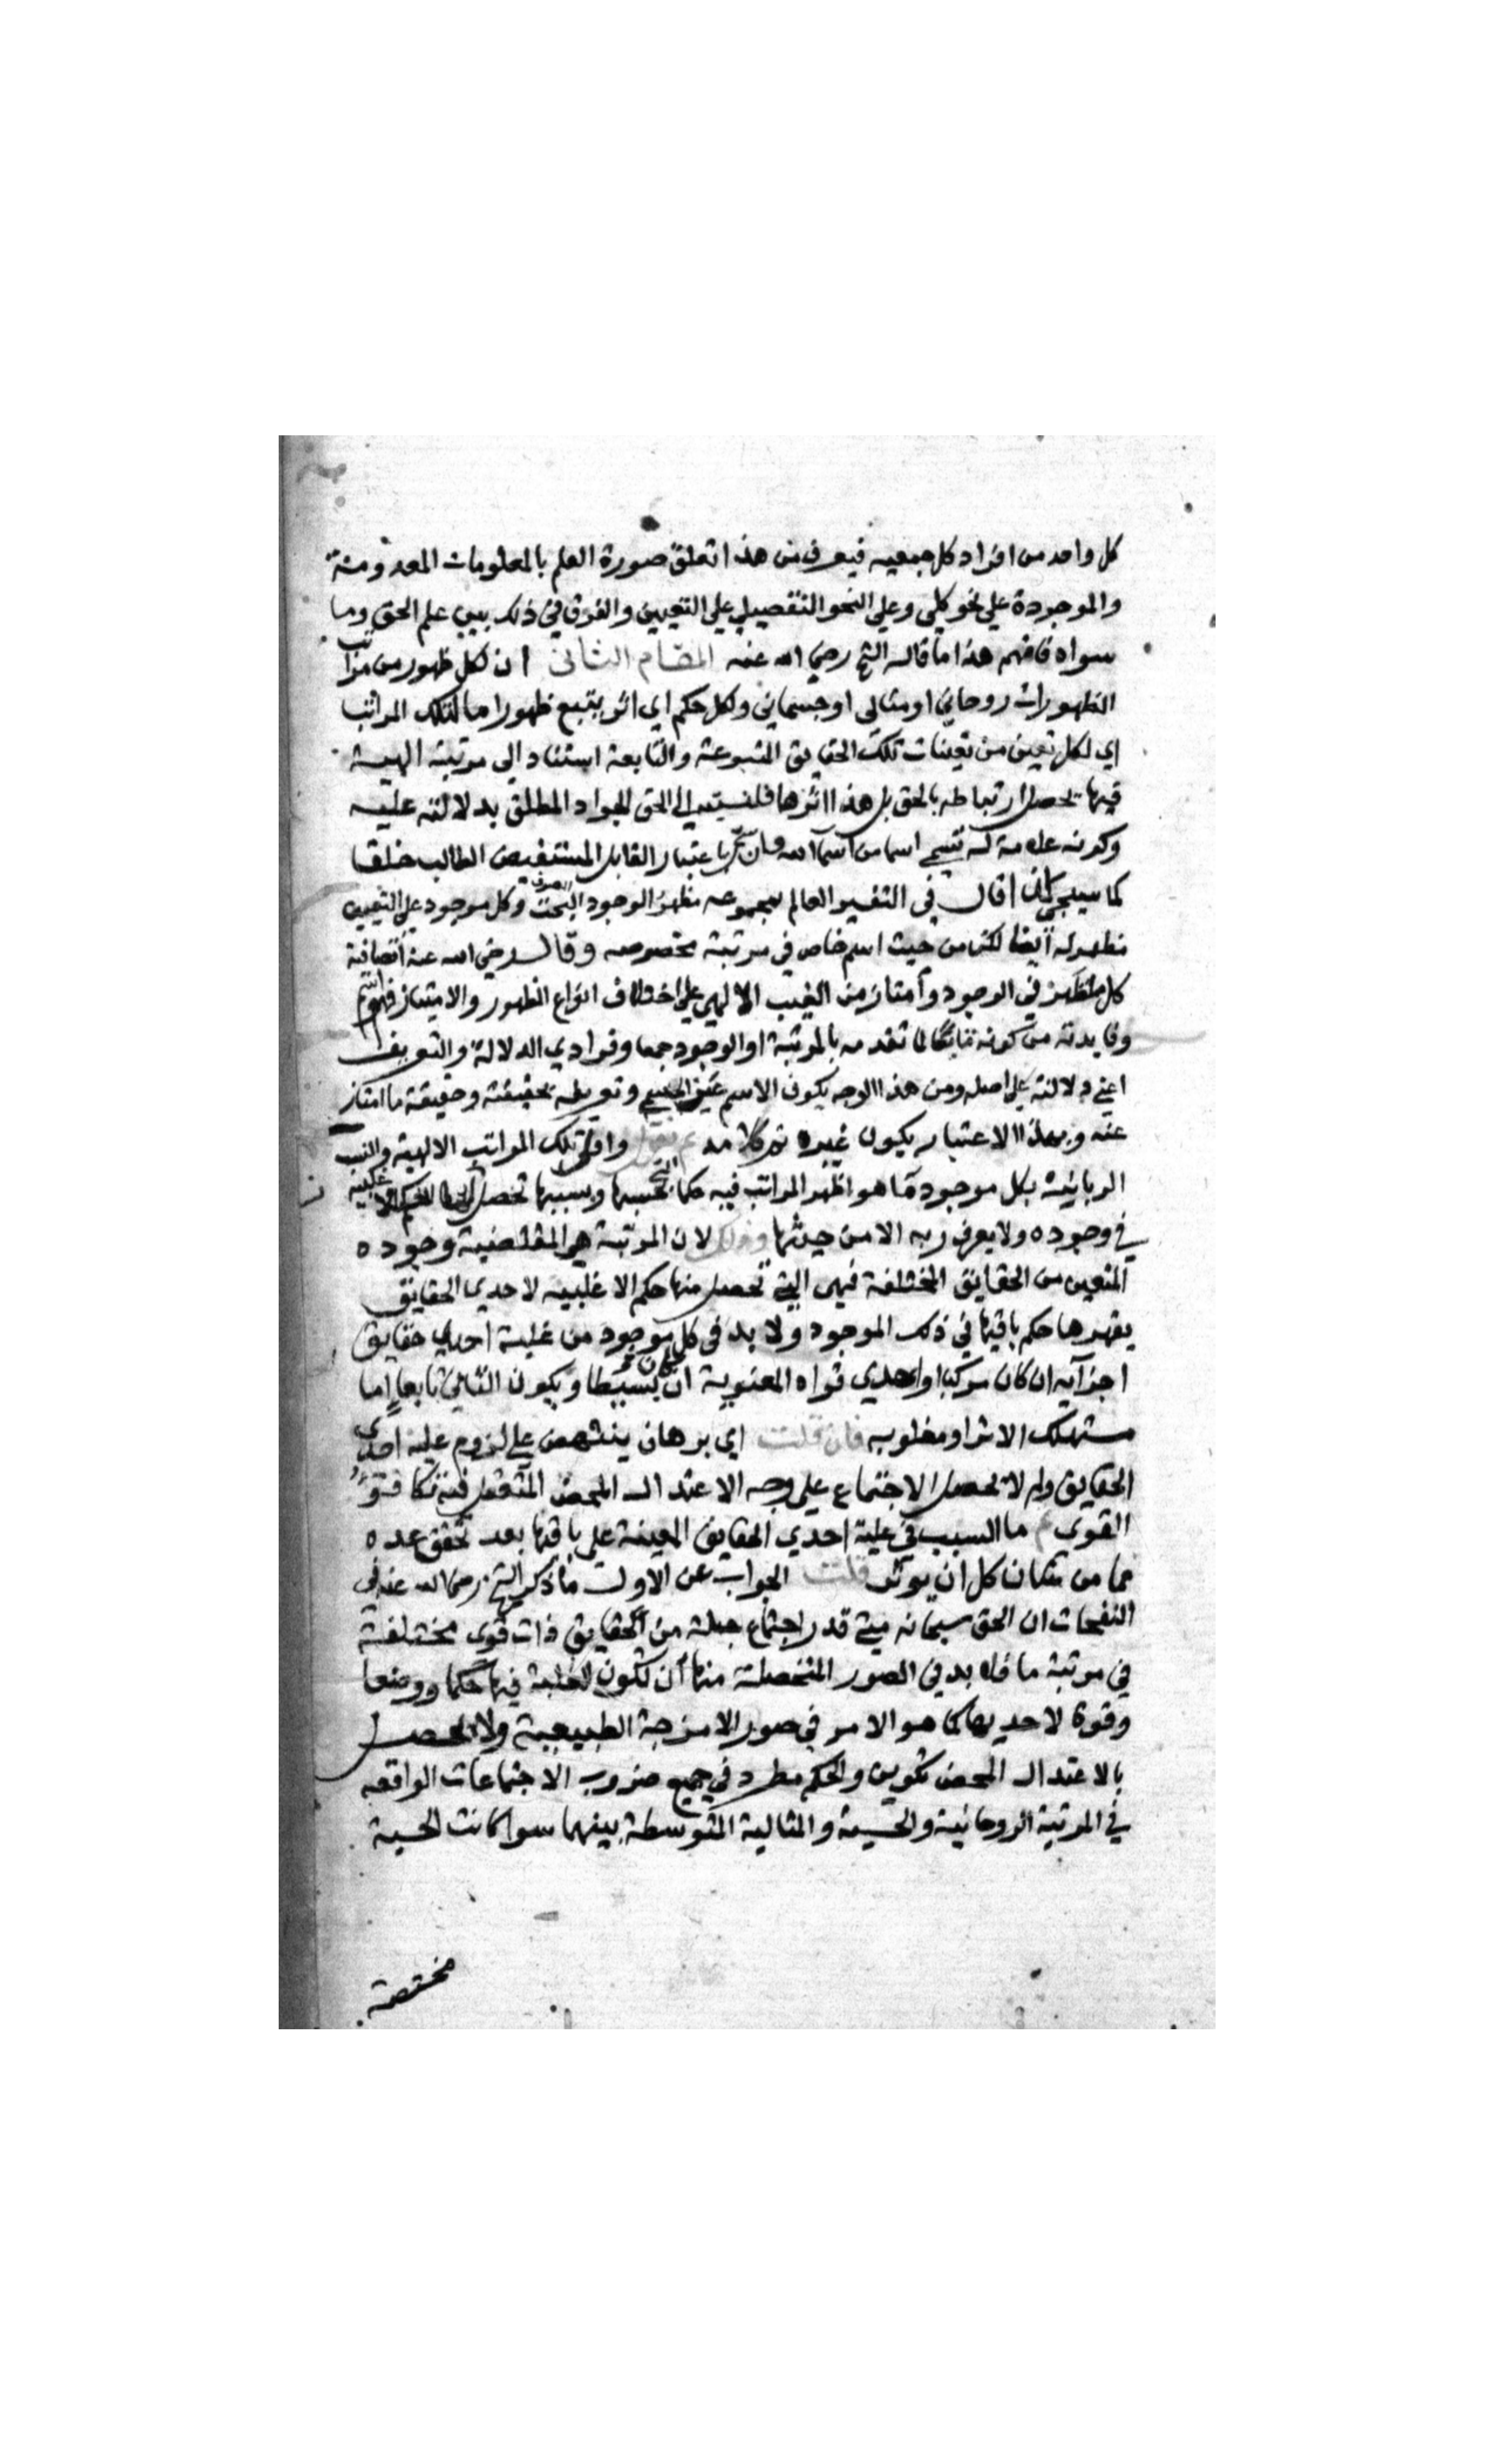 كل واحد من افراد كل جمعيه فيعرف من هذا تعلق صورة العلم بالمعلومات المعدومة
والموجودة علي نحو كلي وعلي النحو التفصيلي علي التعيين والفرق في ذلك بين علم الحق وما
سواه فافهم هذا ما قاله الشيخ رضي الله عنه المقام الثاني ان لكل ظهور من مراتب
الظهورات روحاني او مثالي او جسماني ولكل حكم اي اثر يتبع ظهورا ما لتلك المراتب
اي لكل تعين من تعينات تلك الحقايق المتبوعة والتابعة استناد الي مرتبة الهية
فيها يحصل ارتباطه بالحق بل هذا اثرها فلنسبته الي الحق الجواد المطلق بدلالته عليه
وكونه علامة له تسمي اسما من اسما الله باعتبار القابل المستفيض الطالب خلقا
كما سيجي قال في التفسير العالم بمجموعه مظهر الوجود البحت وكل موجود علي التعيين
مظهر له ايضا لكن من حيث اسم خاص في مرتبة مخصوصه وقال رضي الله عنه
كل ما ظهر في الوجود وامتاز من الغيب الالهي علي اختلاف انواع الظهور والامتياز فهو اسم
وفايدته من كونه تابعا لما تقدمه بالمرتبة او الوجود جمعا وفرادي الدلالة والتعريف
اعني دلالته علي اصله ومن هذا الوجه يكون الاسم عين المسمي وتعريفه بحقيقته وحقيقة ما امتاز
عنه وبهذا الاعتبار يكون غيره تم كلامه ثم نقول تلك المراتب الالهية والنسب
الربانية بكل موجود ما هو اظهر المراتب فيه حكما بحسبها وبسببها تحصل
في وجوده ولا يعرف ربه الا من حيثها وذلك لان المرتبة هي المقتضية وجوده
المتعين من الحقايق المختلفة فهي التي تحصل منها حكم الاغلبيه لاحدي الحقايق
يقهرها حكم باقيها في ذلك الموجود ولا بد في كل موجود من غلبة احدي حقايق
اجزآيه ان كان مركبا او احدي قواه المعنوية ان كان بسيطا ويكون الباقي تابعا اما
مستهلك الاثر او مغلوبه فان قلت اي برهان ينتهض علي لزوم غلبة احدي
الحقايق ولم لا تحصل الاجتماع علي وجه الاعتدال المحض المتعقل فيه تكافؤ
القوي ثم ما السبب في غلبة احدي الحقايق المعينة علي باقيها بعد تحقق عده
مما من شان كل ان يوثر قلت الجواب عن الاول ما ذكر الشيخ رضي الله عنه في
النفحات ان الحق سبحانه متي قدر اجتماع جملة من الحقايق ذات قوي مختلفة
في مرتبة ما فلا بد في الصور المتحصلة منها ان تكون الغلبة فيها حكما ووضعا
وقوة لاحديها كما هو الامر في صور الامزجة الطبيعية ولا يحصل
بالاعتدال المحض تكوين والحكم مطرد في جميع ضروب الاجتماعات الواقعه
في المرتبة الروحانية والحسية والمثالية المتوسطة بينهما سوا كانت الحسية
مختصة